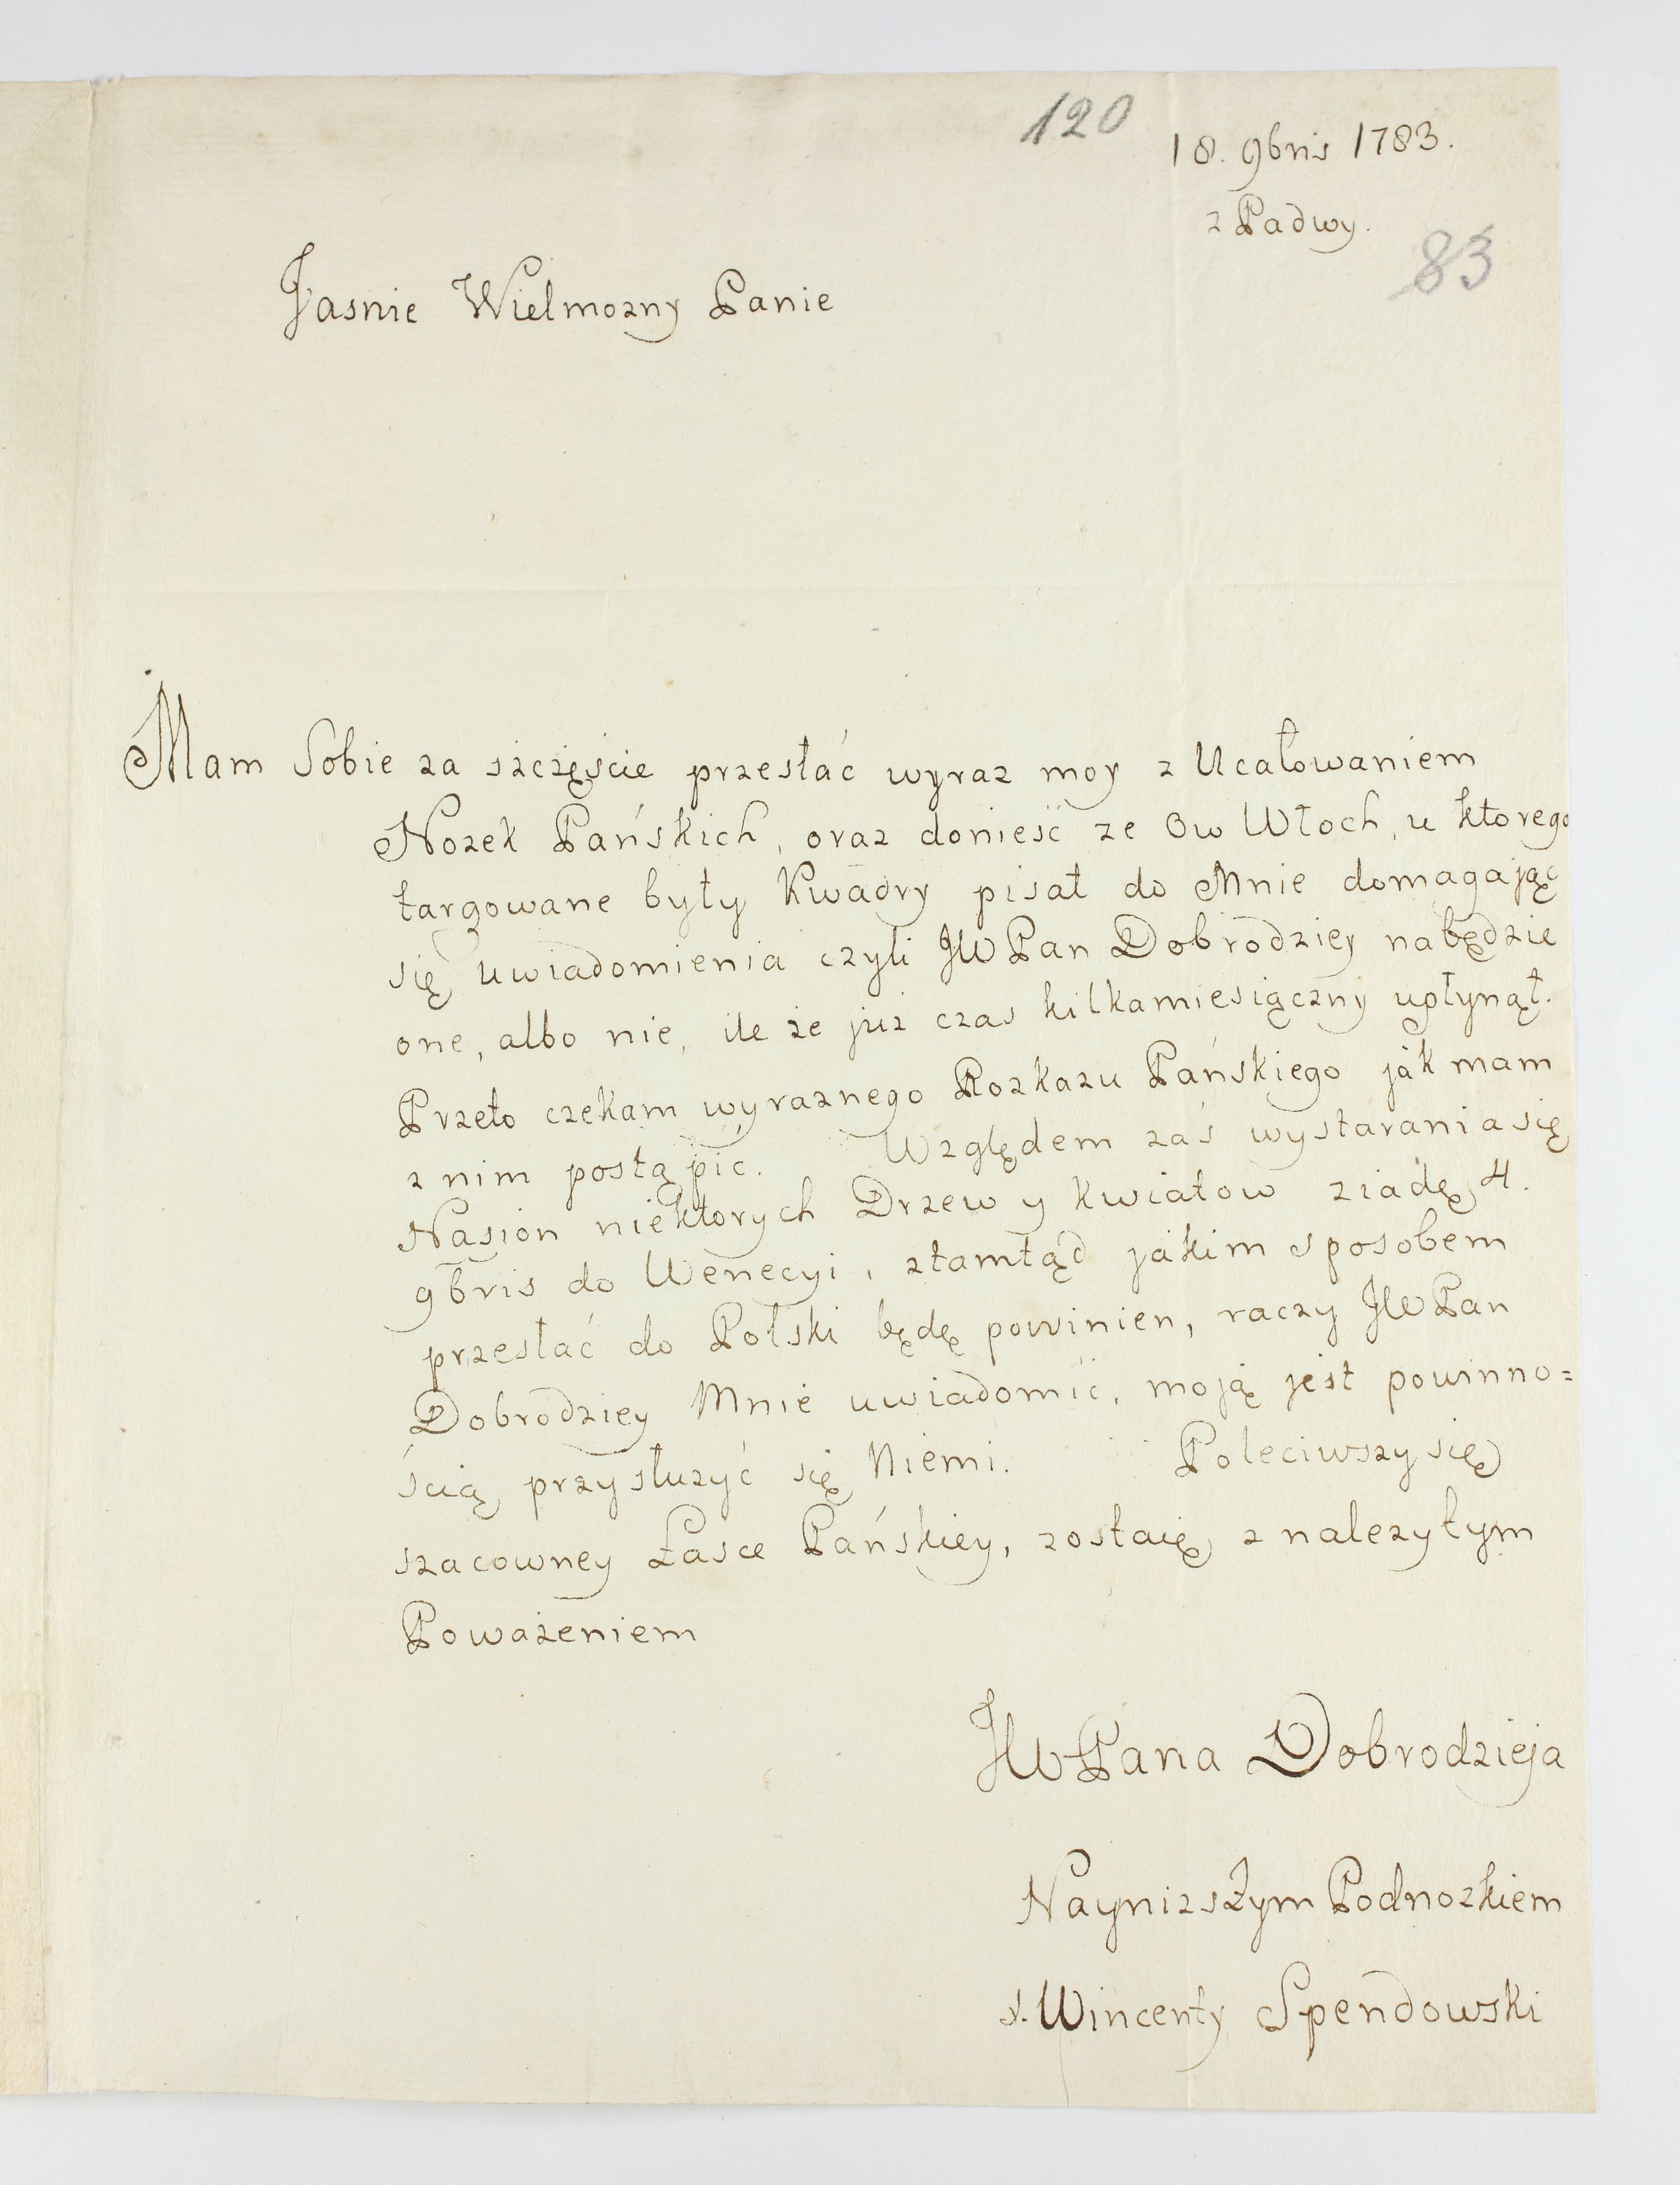 120
18. 9bris 1783.
z Padwy.
83
Jasnie Wielmozny Panie
Mam Sobie za szczęście przesłać wyraz moy z Ucałowaniem
Nozek Pańskich, oraz donieść ze Ow Włoch, u ktorego
targowane były Kwadry pisał do Mnie domagając
się uwiadomienia czyli JWPan Dobrodziey nabędzie
one, albo nie, ile że już czas kilkamiesięczny upłynął.
Przeto czekam wyraznego Rozkazu Pańskiego jak mam
z nim postąpić. Względem zaś wystarania się
Nasion niektorych Drzew y kwiatow ziadę 4.
9bris do Wenecyi, ztamtąd jakim sposobem
przesłać do Polski będę powinien, raczy JWPan
Dobrodziey Mnie uwiadomić, moją jest powinno=
ścią przysłużyć się Niemi. Poleciwszy się
szacowney Łasce Pańskiey, zostaię z nalezytym
Poważeniem
JWPana Dobrodzieja
Nayniższym Podnozkiem
Wincenty Spendowski